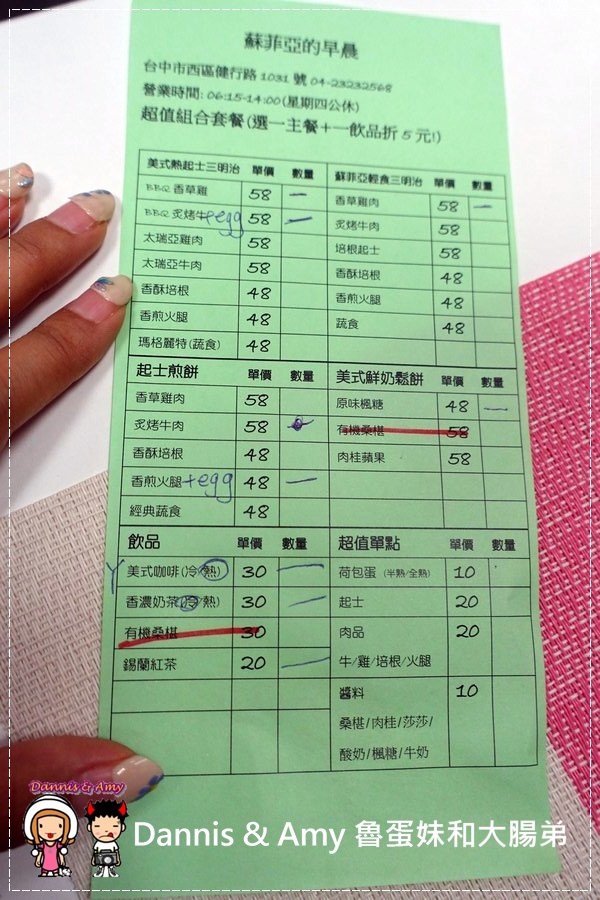 蘇菲亞的早晨
台中市西區健行路 1031 號 04-23232568
營業時間: 06:15-14:00(星期四公休)
超值組合套餐(選一主餐+一飲品折 5 元!)
美式熱起士三明治 單價 數量
BBQ 香草雞 58 一
BBQ 炙烤牛 +egg 58 一
太瑞亞雞肉 58
太瑞亞牛肉 58
香酥培根 48
香煎火腿 48
瑪格麗特(蔬食) 48
蘇菲亞輕食三明治 單價 數量
香草雞肉 58 一
炙烤牛肉 58
培根起士 58
香酥培根 48
香煎火腿 48
蔬食 48
起士煎餅 單價 數量
香草雞肉 58
炙烤牛肉 58
香酥培根 48
香煎火腿 +egg 48 一
經典蔬食 48
美式鮮奶鬆餅 單價 數量
原味楓糖 48 一
有機桑椹 58
肉桂蘋果 58
飲品 單價 數量
美式咖啡(冷/熱) 30 一
香濃奶茶(冷/熱) 30 一
有機桑椹 30
錫蘭紅茶 20 一
超值單點 單價 數量
荷包蛋 (半熟/全熟) 10
起士 20
肉品 20
牛/雞/培根/火腿
醬料 10
桑椹/肉桂/莎莎/
酸奶/楓糖/牛奶
Dannis & Amy
Dannis & Amy 魯蛋妹和大腸弟